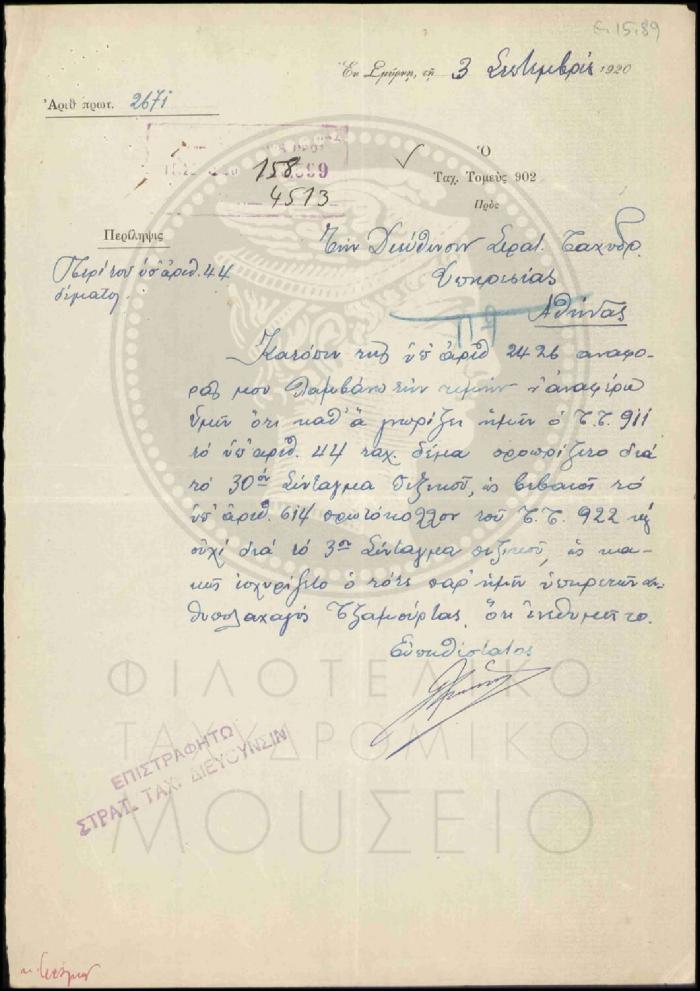 ε-15.89
Ἐν Σμύρνῃ, τῇ 3 Σεπτεμβρίου 1920
Ἀριθ πρωτ. 2671
158
4513
Ὁ
Ταχ. Τομεὺς 902
Πρὸς
Περίληψις
Περὶ τοῦ ὑπ' ἀριθ. 44
δέματος.
Τὴν Διεύθυνσιν Στρατ. Ταχυδρ.
Ὑπηρεσίας
Ἀθήνας
Κατόπιν τῆς ὑπ' ἀριθ 2426 ἀναφο-
ρᾶς μου λαμβάνω τὴν τιμὴν ν' ἀναφέρω
ὑμῖν ὅτι καθ' ἃ γνωρίζει ἡμῖν ὁ Τ.Τ. 911
τὸ ὑπ' ἀριθ. 44 ταχ. δέμα προωρίζετο διὰ
τὸ 30ὸν Σύνταγμα Πεζικοῦ, ὡς βεβαιοῖ τὸ
ὑπ' ἀριθ. 614 πρωτόκολλον τοῦ Τ.Τ. 922 καὶ
οὐχὶ διὰ τὸ 3ον Σύνταγμα πεζικοῦ, ὡς κα-
κῶς ἰσχυρίζετο ὁ τότε παρ' ἡμῖν ὑπηρετῶν ἀν-
θυπολοχαγὸς Τζαμούρτας, ὅτι ἐνεθυμεῖτο.
Εὐπειθέστατος
ΕΠΙΣΤΡΑΦΗΤΩ
ΣΤΡΑΤ. ΤΑΧ. ΔΙΕΥΘΥΝΣΙΝ
ΦΙΛΟΤΕΛΙΚΟ
ΤΑΧΥΔΡΟΜΙΚΟ
ΜΟΥΣΕΙΟ